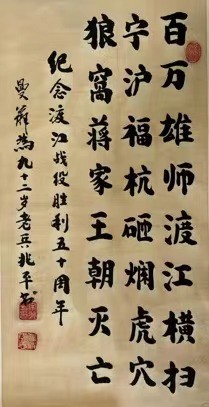 百万雄师渡江横扫
宁沪福杭砸爛虎穴
狼窩蒋家王朝灭亡
纪念渡江战役胜利五十周年
九十二岁老兵兆平书